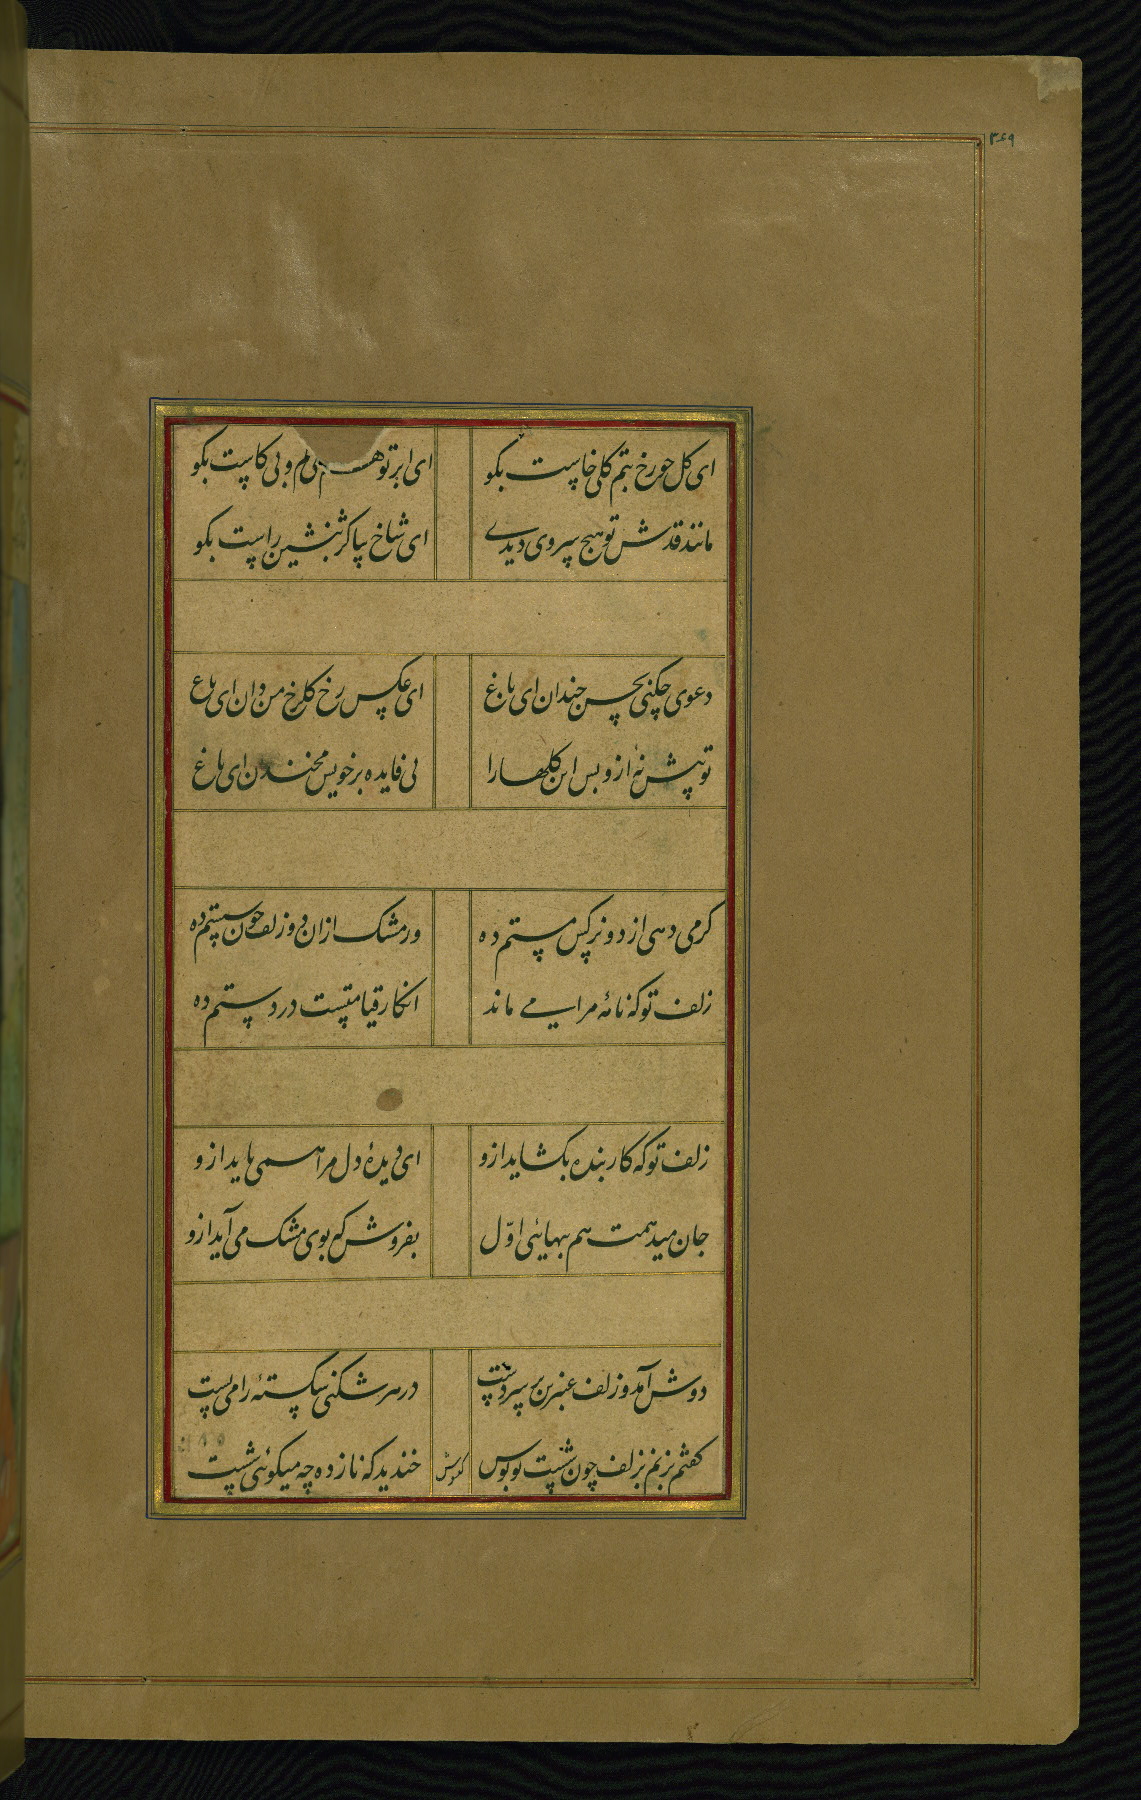 ۳۶۹
ای کل چو رخ بتم کلی خاست بکو
ای ابر تو هم نمی و بی کاست بکو
مانند قدش تو هیچ سروی دیدی
ای شاخ بیا کژ بنشین راست بکو
دعوی چکنی بحسن چندان ای باغ
ای عکس رخ کلرخ من دان ای باغ
تو پیش نهٔ ازو بس این کلها را
بی فایده بر خویش مخندان ای باغ
کر می دهی از دو نرکس مستم ده
ور مشک از ان دو زلف چون شستم ده
زلف تو که نامهٔ مرا می ماند
انکار قیامتست در دستم ده
زلف تو که کار بنده بکشاید ازو
ای دیدهٔ دل مرا همی باید ازو
جان میدهمت هم ببهائی اول
بفروش که بوی مشک می آید ازو
دوش آمد و زلف عنبرین بر سر دست
در هر شکنی شکستهٔ را می بست
کفتم بزنم بزلف چون شستت بوس
خندید که نازده چه میکوئی شست